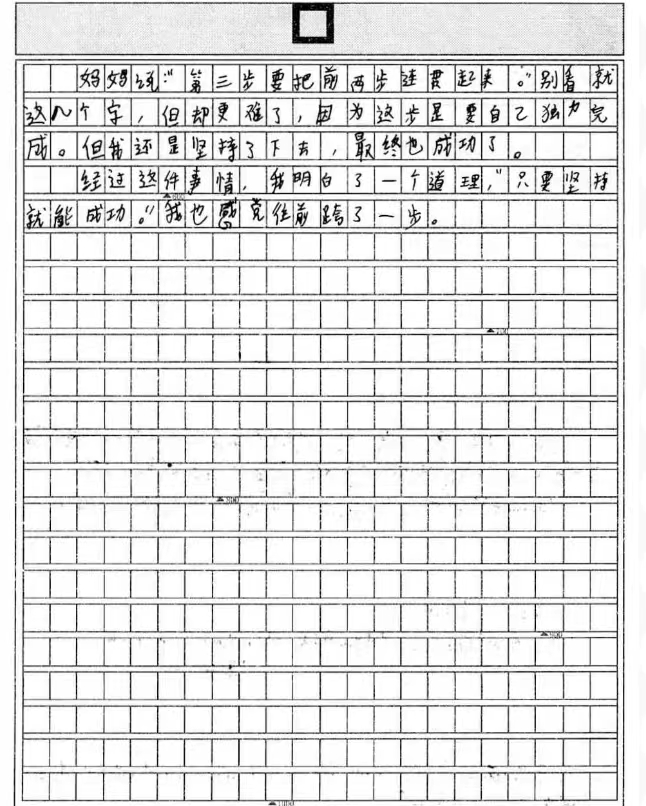 妈妈说:“第三步要把前两步连贯起来。”别看就
这几个字,但却更难了,因为这步是要自己独力完
成。但我还是坚持了下去,最终也成功了。
经过这件事情,我明白了一个道理,“只要坚持
▲600
就能成功。”我也感觉往前跨了一步。
▲700
▲800
▲900
▲1000